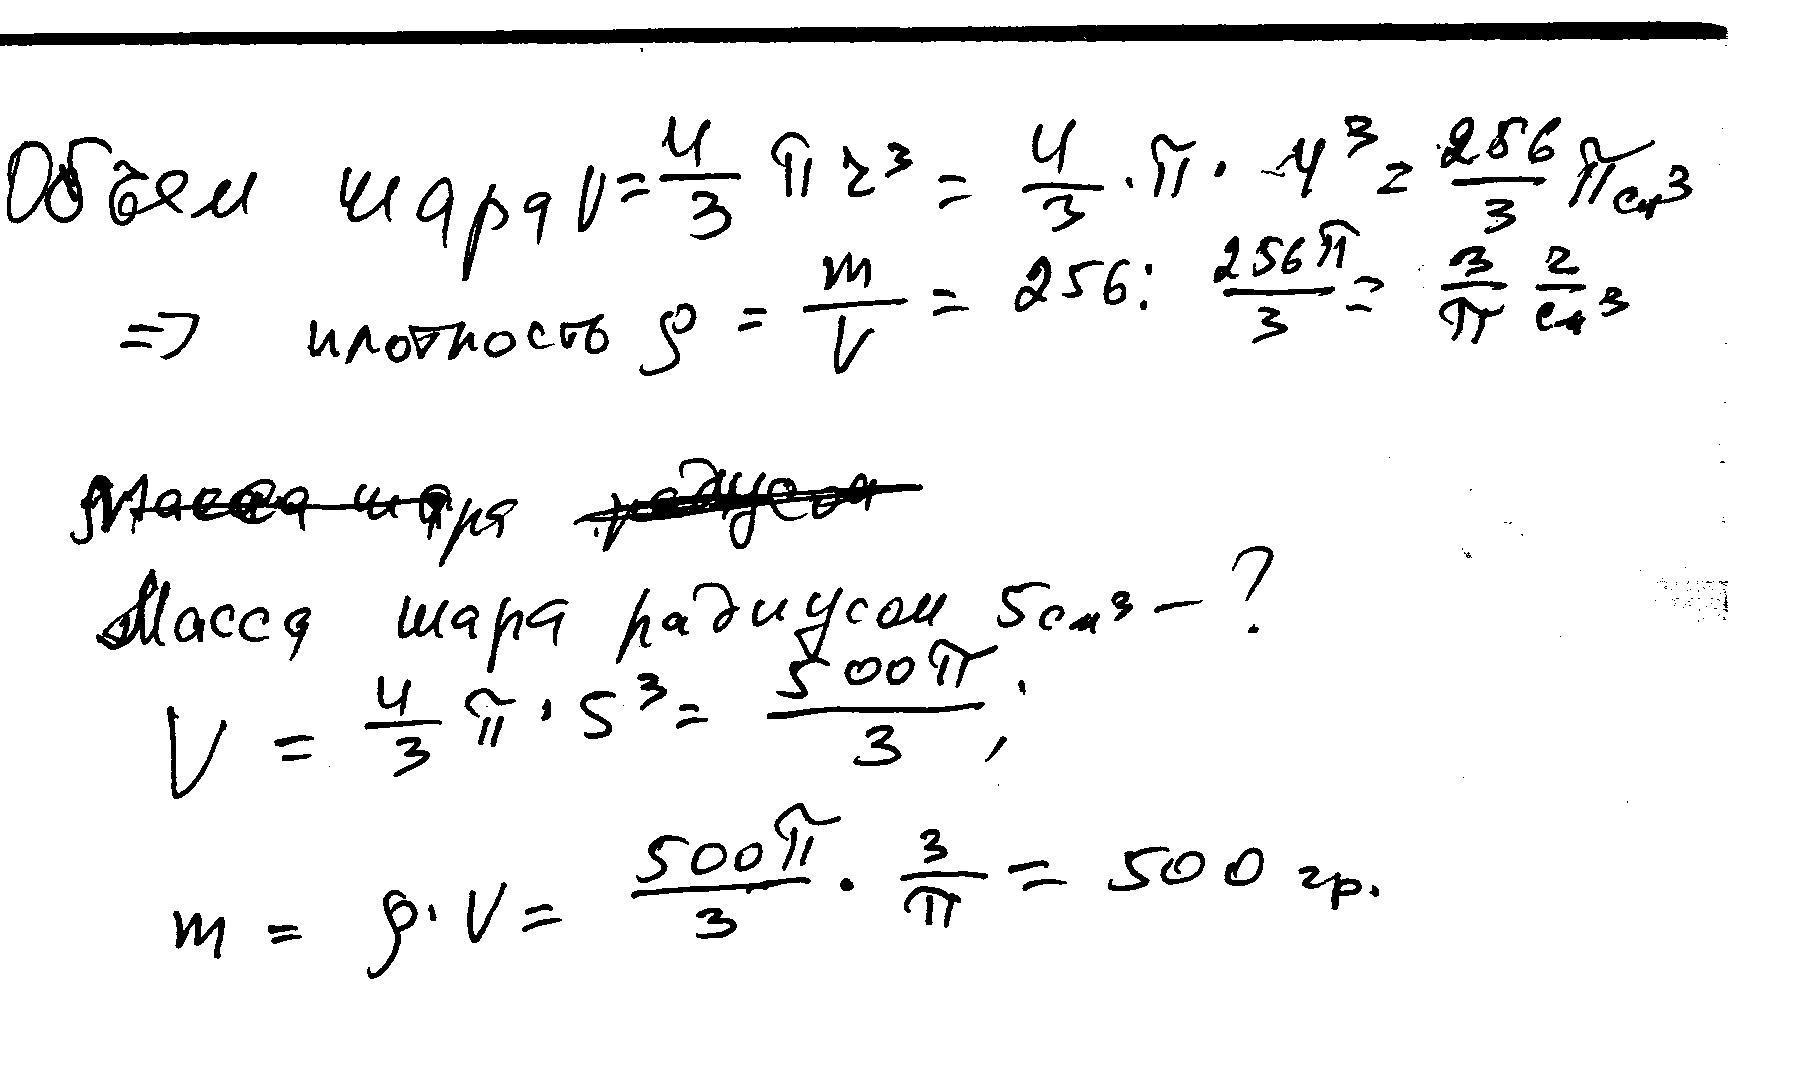 Объем шара V = 4/3 π r³ = 4/3 · π · 4³ = 256/3 π см³
=> плотность ρ = m/V = 256 : 256π/3 = 3/π г/см³
Масса шара радусом
Масса шара радиусом 5см³ – ?
V = 4/3 π · 5³ = 500π/3 ;
m = ρ · V = 500π/3 · 3/π = 500 гр.